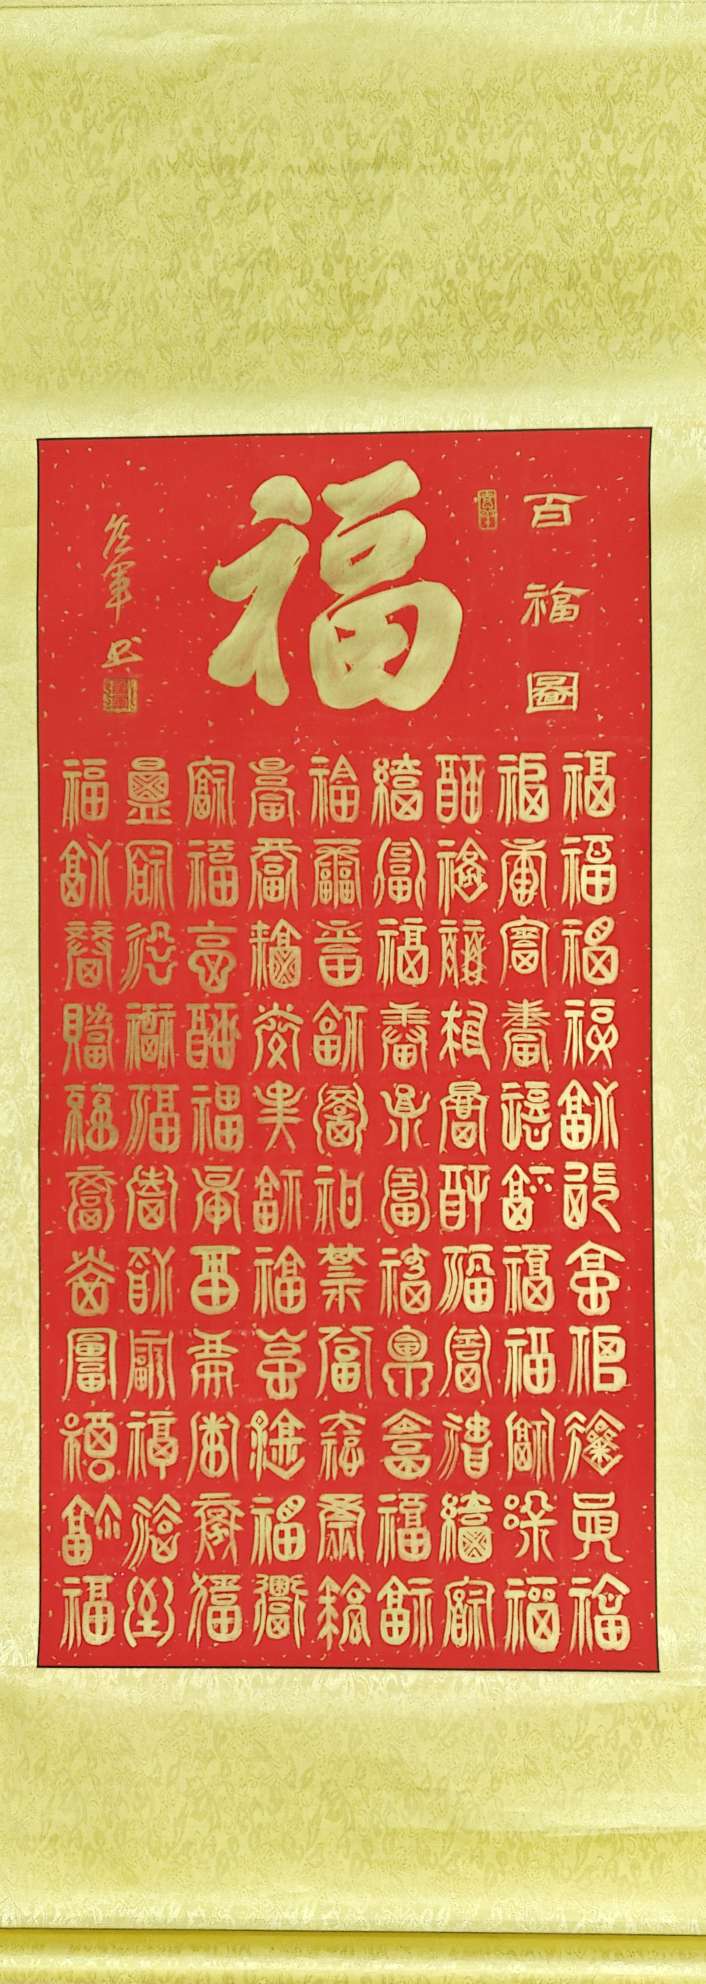 百福圖
福
軍书
福福福福福福福福福福福
福福福福福福福福福福福
福福福福福福福福福福福
福福福福福福福福福福福
福福福福福福福福福福福
福福福福福福福福福福福
福福福福福福福福福福福
福福福福福福福福福福福
福福福福福福福福福福福